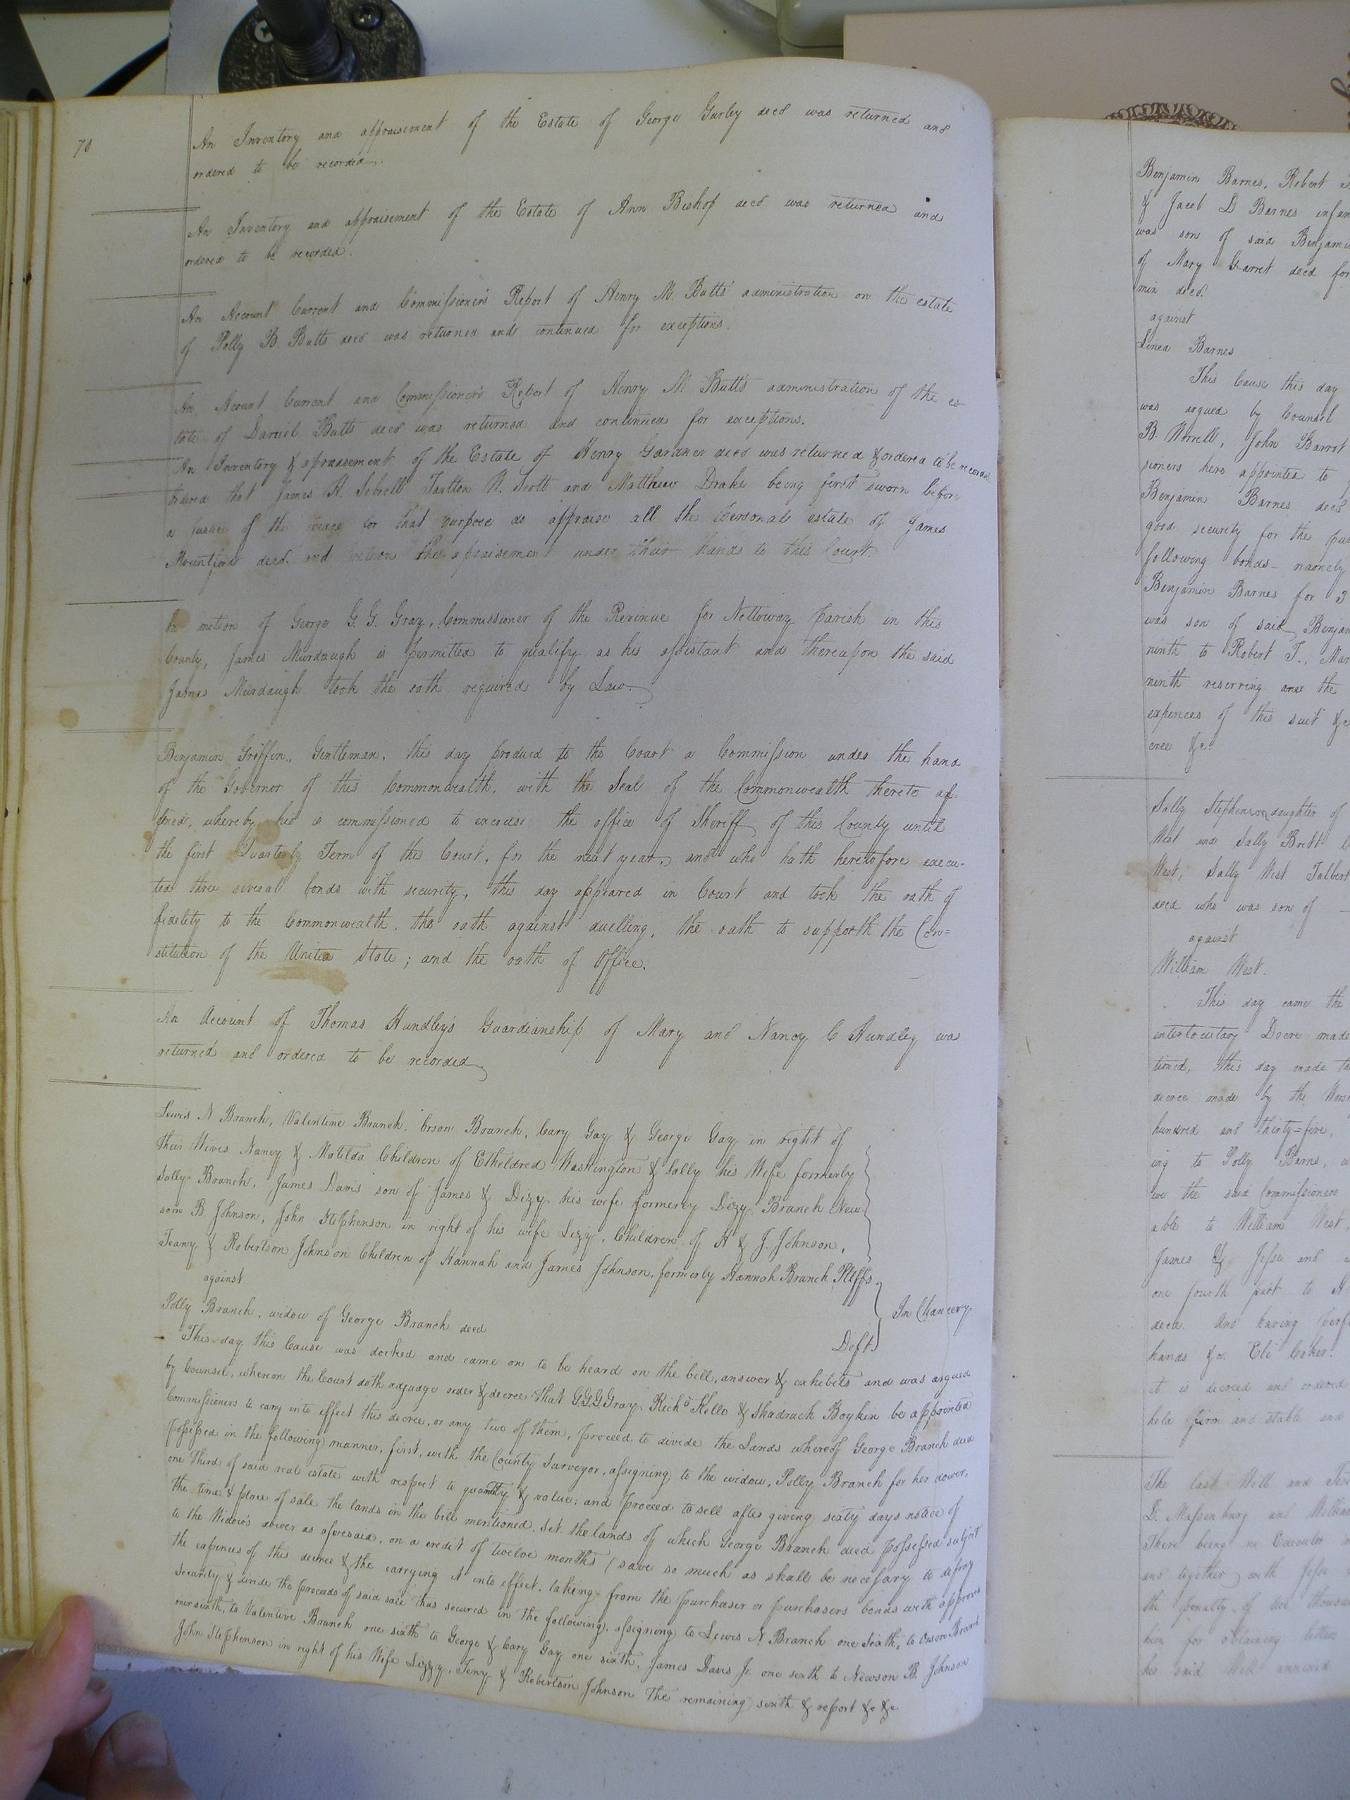 70
An Inventory and appraisement of the Estate of George Gurley decd was returned and
ordered to be recorded.
An Inventory and appraisement of the Estate of Ann Bishop decd was returned and
ordered to be recorded.
An Account Current and Commissioner's Report of Henry M. Butts' administration on the estate
of Polly B. Butts decd was returned and continued for exceptions.
An Acount Current and Commissioner's Report of Henry M Butts administration of the es-
tate of Daniel Butts decd was returned and continued for exceptions.
An Inventory & apraisement of the Estate of Henry Gardner decd was returned & ordered to be recorded
Ordered that James H. Sebrell Tartton W. Scott and Matthew Drake being first sworn before
a justice of the peace for that purpose do appraise all the personal estate of James
Mountfort decd. and return the appraisement under their hands to this Court
On motion of George G. G. Gray, Commissioner of the Revenue for Nottoway Parish in this
County, James Murdaugh is permitted to qualify as his assistant and thereupon the said
James Murdaugh took the oath required by Law
Benjamin Griffin, Gentleman, this day produced to the Court a Commission under the hand
of the Governor of this Commonwealth, with the Seal of the Commonwealth thereto af-
fixed, whereby he is commissioned to execise the office of Sheriff of this County until
the first Quarterly Term of this Court, for the next year, and who hath heretofore execu-
ted three several bonds with security, this day appeared in Court and took the oath of
fidelity to the Commonwealth, the oath against duelling, the oath to supporth the Con=
stitution of the United State; and the oath of Office.
An Account of Thomas Hundley's Guardianship of Mary and Nancy C Hundley was
returned and ordered to be recorded
Lewis N Branch, Valentine Branch, Orson Branch, Cary Gay & George Gay in right of
their Wives Nancy & Matilda Children of Etheldred Washington & Sally his Wife formerly
Sally Branch, James Davis son of James & Dizy his wife formerly Dizy Branch New
som B Johnson, John Stephenson in right of his wife Lizzy, Children of H & J. Johnson,
Teany & Robertson Johnson Children of Hannah and James Johnson, formerly Hannah Branch Pltffs
against
In Chancery
Polly Branch, widow of George Branch decd
Deft
This day this Cause was docked and came on to be heard on the bill, answer & exhibits and was argued
by Counsel, whereon the Court doth adjudge order & decree that G.G.G. Gray Richd Kello & Shadrach Boykin be appointed
Commissioners to carry into effect this decree, or any two of them, proceed to divide the Lands whereof George Branch died
possessed in the following manner, first, with the County Surveyor, assigning to the widow, Polly Branch for her dower,
one third of said real estate with respect to quantity & value; and proceed to sell after giving sixty days notice of
the time & place of sale the lands in the bill mentioned. Set. the lands of which George Branch died possessed subject
to the Widow's dower as aforesaid, on a credit of twelve months (save so much as shall be necessary to defray
the expences of this decree & the carrying it into effect, taking from the purchaser or purchasers bonds with approved
security & divide the proceeds of said sale thus secured in the following, assigning to Lewis N. Branch one sixth, to Orson Branch
one sixth, to Valentine Branch one sixth to George & Cary Gay one sixth, James Davis Jr one sixth to Newsom B. Johnson
John Stephenson in right of his Wife Lizzy, Teny & Robertson Johnson The remaining sixth & report &c &c
Benjamin Barnes, Robert
& Jacob D Barnes infan
was son of said Benjami
of Mary Garret decd for
min decd.
against
Linea Barnes
This Cause this day
was argued by Counsel
B. Worrell, John Barrot
sioners here appointed to
Benjamin Barnes decd
good security for the pur
following bonds- namely
Benjamin Barnes for 3
was son of said Benjam
ninth to Robert T., Mar
ninth reserving and the
expences of this suit &c
cree &c.
Sally Stephenson daughter of
West and Sally Britt
West, Sally West Talbert
decd who was son of
against
William West.
This day came the
interlocutory Decree made
tioned, this day made th
decree made by the Wors
hundred and thirty=five,
ing to Polly Barns, a
we the said Commissioners
able to William West,
James & Jesse and
one fourth part to
decd. And having perf
hands &c. Eli Coker.
it is decreed and ordered
held firm and stable and
The last Will and Tes
D. Massenburg and William
There being no Executor
and together with Jesse
the penalty of six thousan
him for obtaining letters
his said Will annexed